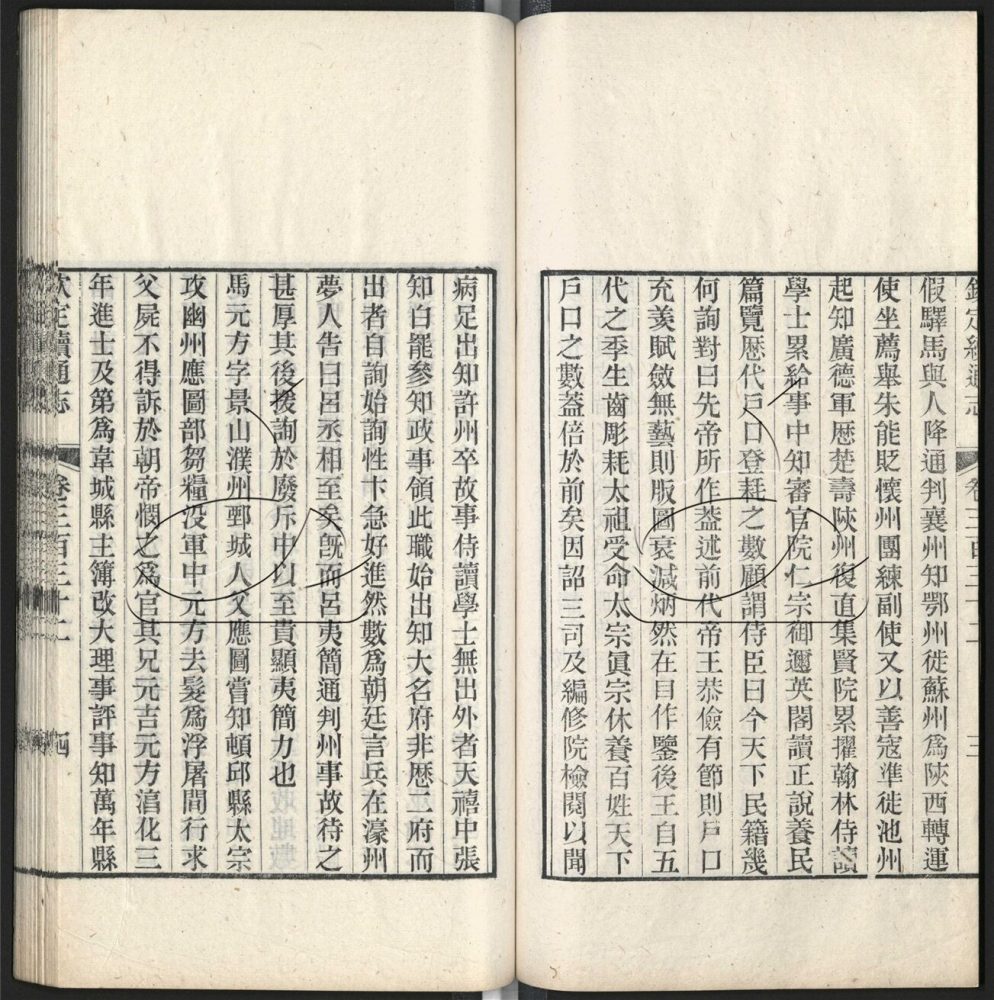 欽定續通志 卷三百三十二 三
假驛馬與人降通判襄州知鄂州徙蘇州爲陝西轉運
使坐薦舉朱能貶懷州團練副使又以善寇準徙池州
起知廣德軍歷楚壽陝州復直集賢院累擢翰林侍讀
學士累給事中知審官院仁宗御邇英閣讀正說養民
篇覽歷代戶口登耗之數顧謂侍臣曰今天下民籍幾
何詢對曰先帝所作葢述前代帝王恭儉有節則戶口
充羨賦斂無藝則版圖衰減炳然在目作鑒後王自五
代之季生齒彫耗太祖受命太宗眞宗休養百姓天下
戶口之數葢倍於前矣因詔三司及編修院檢閱以聞
病足出知許州卒故事侍讀學士無出外者天禧中張
知白罷參知政事領此職始出知大名府非歷二府而
出者自詢始詢性卞急好進然數爲朝廷言兵在濠州
夢人告曰呂丞相至矣旣而呂夷簡通判州事故待之
甚厚其後援詢於廢斥中以至貴顯夷簡力也
馬元方字景山濮州鄄城人父應圖嘗知頓邱縣太宗
攻幽州應圖部芻糧没軍中元方去髮爲浮屠間行求
父屍不得訴於朝帝憫之爲官其兄元吉元方淳化三
年進士及第爲韋城縣主簿改大理事評事知萬年縣
欽定續通志 卷三百三十二 四